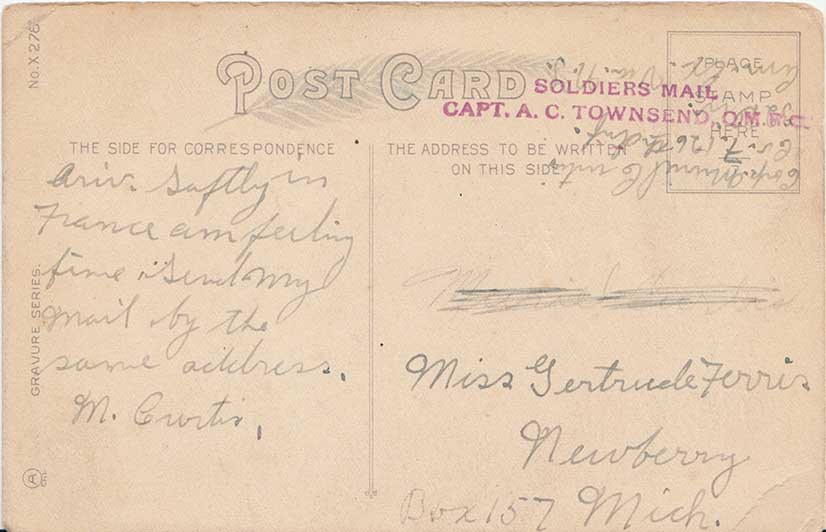 No. X 276
POST CARD
PLACE
STAMP
HERE
SOLDIERS MAIL
CAPT. A. C. TOWNSEND, Q.M.R.C
THE SIDE FOR CORRESPONDENCE
THE ADDRESS TO BE WRITTEN
ON THIS SIDE
Ariv. Saftly in
France am feeling
fine. Send my
mail by the
same address.
M. Curtis,
Miss Gertrude Ferris
Newberry
Box 157 Mich.
GRAVURE SERIES.
Curtis
126th